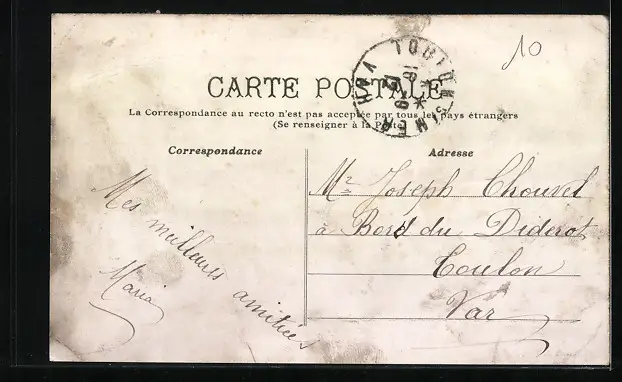 10
CARTE POSTALE
La Correspondance au recto n'est pas acceptée par tous les pays étrangers
(Se renseigner à la Poste)
Correspondance
Adresse
Mes meilleures amitiés
Maria
Mr Joseph Chouvel
à Bord du Diderot
Toulon
Var
TOULON
VAR